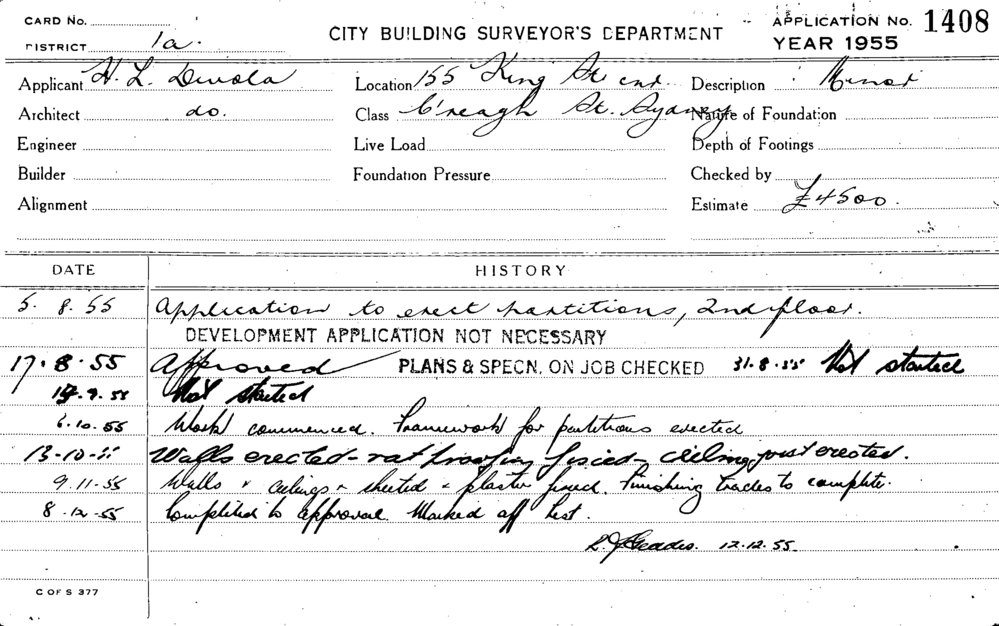 CARD No.
DISTRICT 1a.
CITY BUILDING SURVEYOR'S DEPARTMENT
APPLICATION No. 1408
YEAR 1955
Applicant H. L. Divola
Location 155 King St cnr
Description Minor
Architect do.
Class C'reagh St. Sydney
Nature of Foundation
Engineer
Live Load
Depth of Footings
Builder
Foundation Pressure
Checked by
Alignment
Estimate £4500.
DATE HISTORY
5. 8. 55 Application to erect partitions, 2nd floor.
DEVELOPMENT APPLICATION NOT NECESSARY
17. 8. 55 Approved PLANS & SPECN. ON JOB CHECKED 31.8.55 Not started
9. 55 Not started
6.10.55 Work commenced. Framework for partitions erected
13-10-55 Walls erected - ratproofing fixed - cieling joist erected.
9.11.55 Walls & ceilings sheeted & plaster fixed. Finishing trades to complete.
8.12.55 Completed to approval. Marked off list.
12.12.55.
C OF S 377